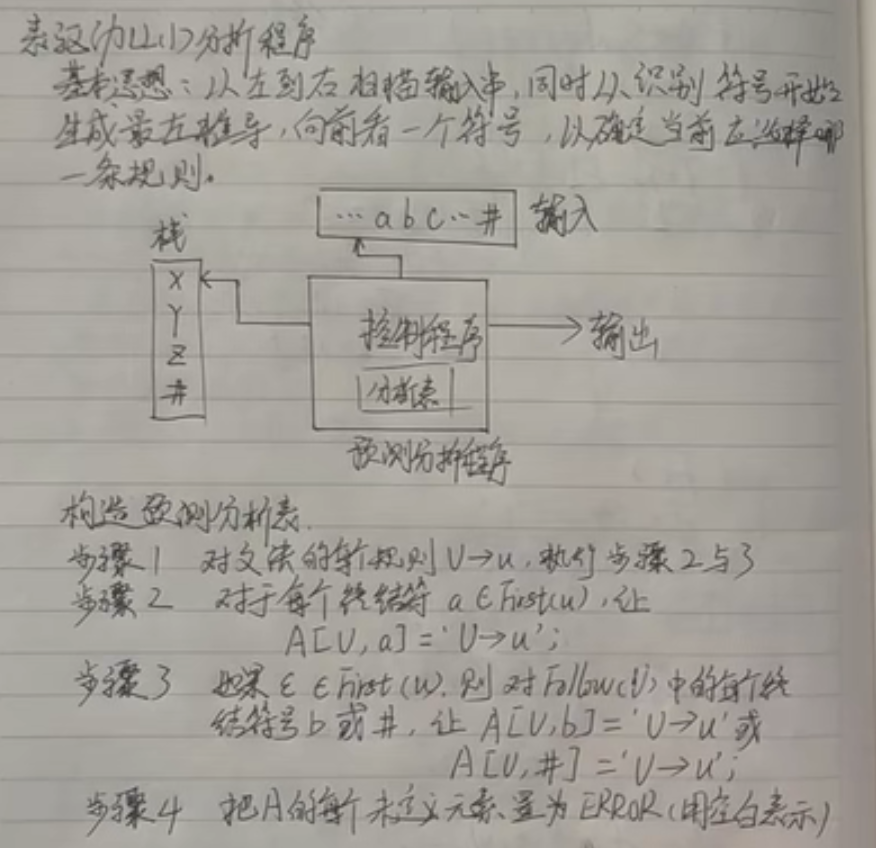 表驱动LL(1)分析程序
基本思想：从左到右扫描输入串，同时从识别符号开始
生成最左推导，向前看一个符号，以确定当前应选择哪
一条规则。
…abc…# 输入
栈
X
Y
Z
#
控制程序
分析表
输出
预测分析程序
构造预测分析表.
步骤1 对文法的每个规则U→u，执行步骤2与3
步骤2 对于每个终结符a∈First(u)，让
A[U,a]='U→u';
步骤3 如果ε∈First(u)，则对Follow(U)中的每个终
结符号b或#，让A[U,b]='U→u'或
A[U,#]='U→u';
步骤4 把A的每个未定义元素置为ERROR(用空白表示)